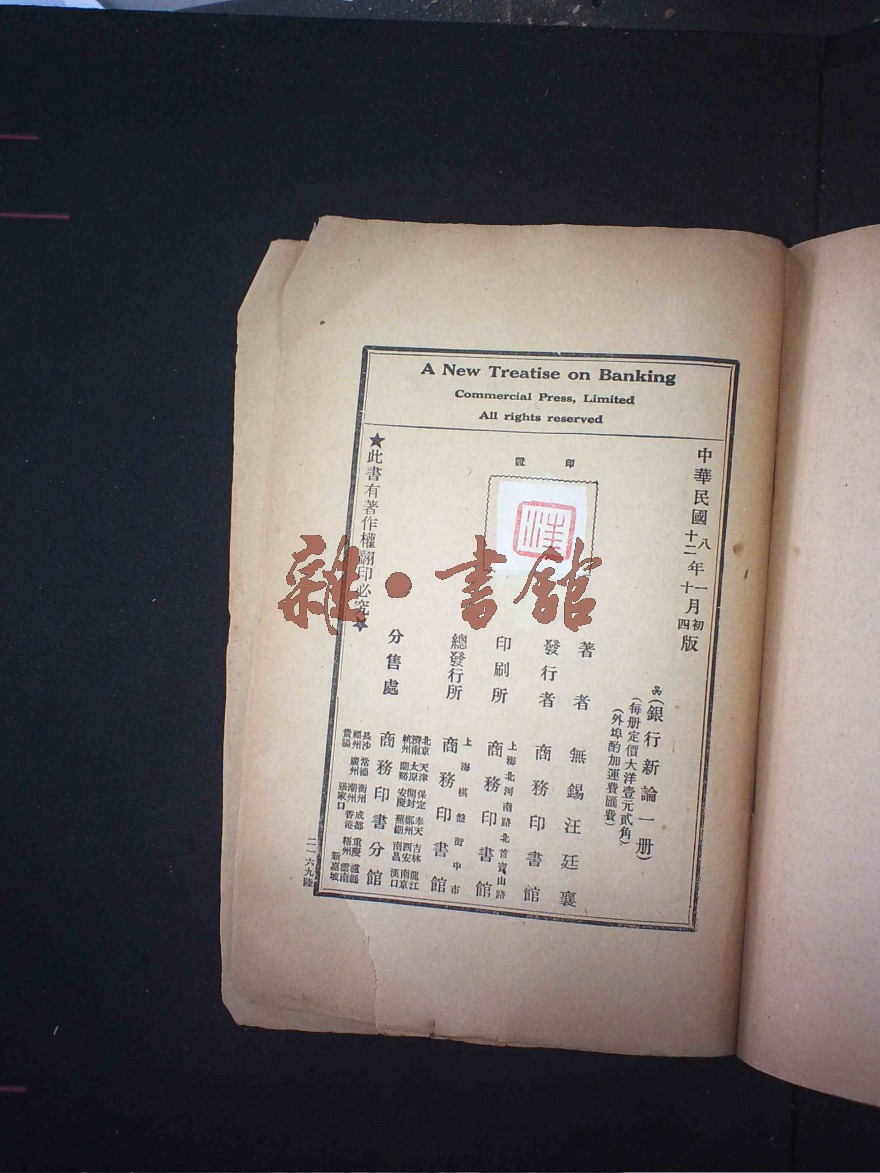 A New Treatise on Banking
Commercial Press, Limited
All rights reserved
中華民國八年一月初版
十二年十月四版
(銀行新論一册)
(每册定價大洋壹元貳角)
(外埠酌加運費匯費)
印證
汪
著者 無錫汪廷襄
發行者 商務印書館
印刷所 上海北河南路北首寶山路 商務印書館
總發行所 上海棋盤街中市 商務印書館
分售處 商務印書分館
北京 天津 保定 奉天 吉林 龍江
濟南 太原 開封 鄭州 西安 南京
杭州 蘭谿 安慶 蕪湖 南昌 漢口
長沙 常德 衡州 成都 重慶 瀘縣
福州 廣州 潮州 香港 梧州 雲南
貴陽 張家口 新嘉坡
★此書有著作權翻印必究★
二一六九陸
雜·書館